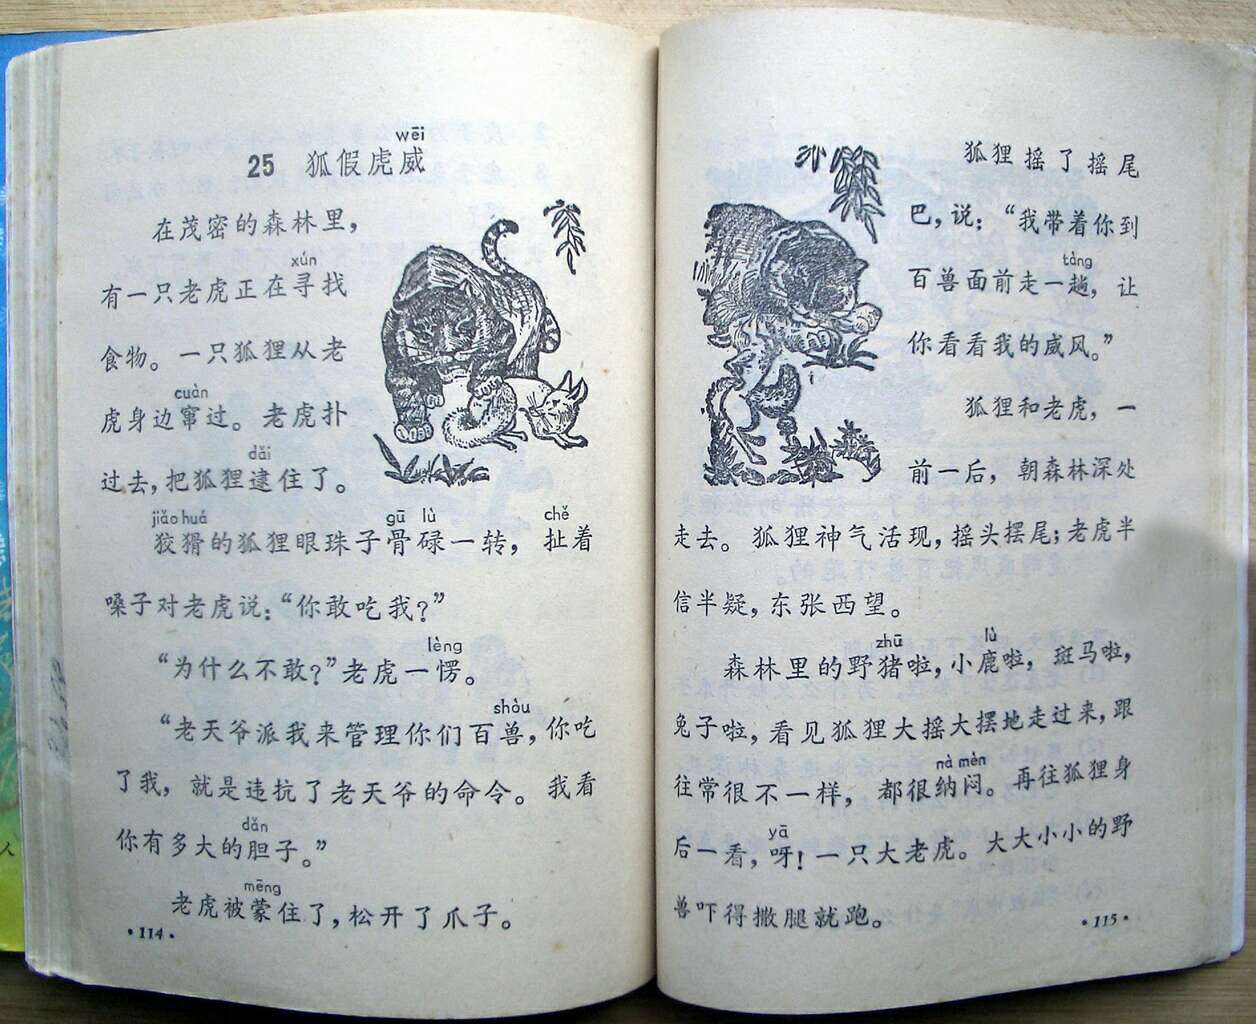 wēi
25 狐假虎威
在茂密的森林里，
xún
有一只老虎正在寻找
食物。一只狐狸从老
cuàn
虎身边窜过。老虎扑
dǎi
过去，把狐狸逮住了。
jiǎo huá gū lù chě
狡猾的狐狸眼珠子骨碌一转，扯着
嗓子对老虎说：“你敢吃我？”
lèng
“为什么不敢？”老虎一愣。
shòu
“老天爷派我来管理你们百兽，你吃
了我，就是违抗了老天爷的命令。我看
dǎn
你有多大的胆子。”
mēng
老虎被蒙住了，松开了爪子。
·114·
狐狸摇了摇尾
巴，说：“我带着你到
tàng
百兽面前走一趟，让
你看看我的威风。”
狐狸和老虎，一
前一后，朝森林深处
走去。狐狸神气活现，摇头摆尾；老虎半
信半疑，东张西望。
zhū lù
森林里的野猪啦，小鹿啦，斑马啦，
兔子啦，看见狐狸大摇大摆地走过来，跟
nà mèn
往常很不一样，都很纳闷。再往狐狸身
yā
后一看，呀！一只大老虎。大大小小的野
兽吓得撒腿就跑。
·115·
人